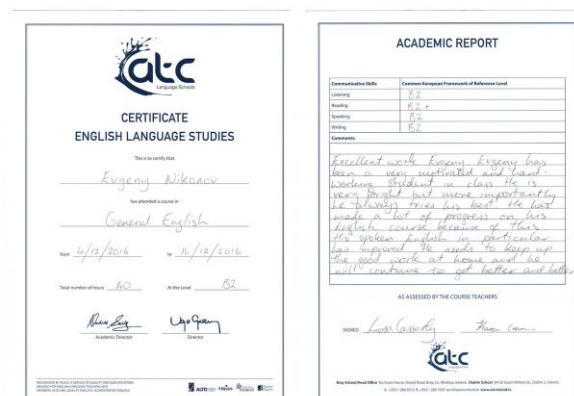 atc
Language Schools
CERTIFICATE
ENGLISH LANGUAGE STUDIES
This is to certify that
Evgeny Nikonov
has attended a course in
General English
from 4/12/2016 to 16/12/2016
Total number of hours 40 At the Level B2
Academic Director Director
ACADEMIC REPORT
Communicative Skills Common European Framework of Reference Level
Listening B2
Reading B2 +
Speaking B2
Writing B2
Comments:
Excellent work Evgeny. Evgeny has
been a very motivated and hard-
working student in class. He is
very bright but more importantly
he always tries his best. He has
made a lot of progress on his
English course because of this.
His spoken English in particular
has improved. He needs to keep up
the good work at home and he
will continue to get better and better
AS ASSESSED BY THE COURSE TEACHERS
SIGNED
atc